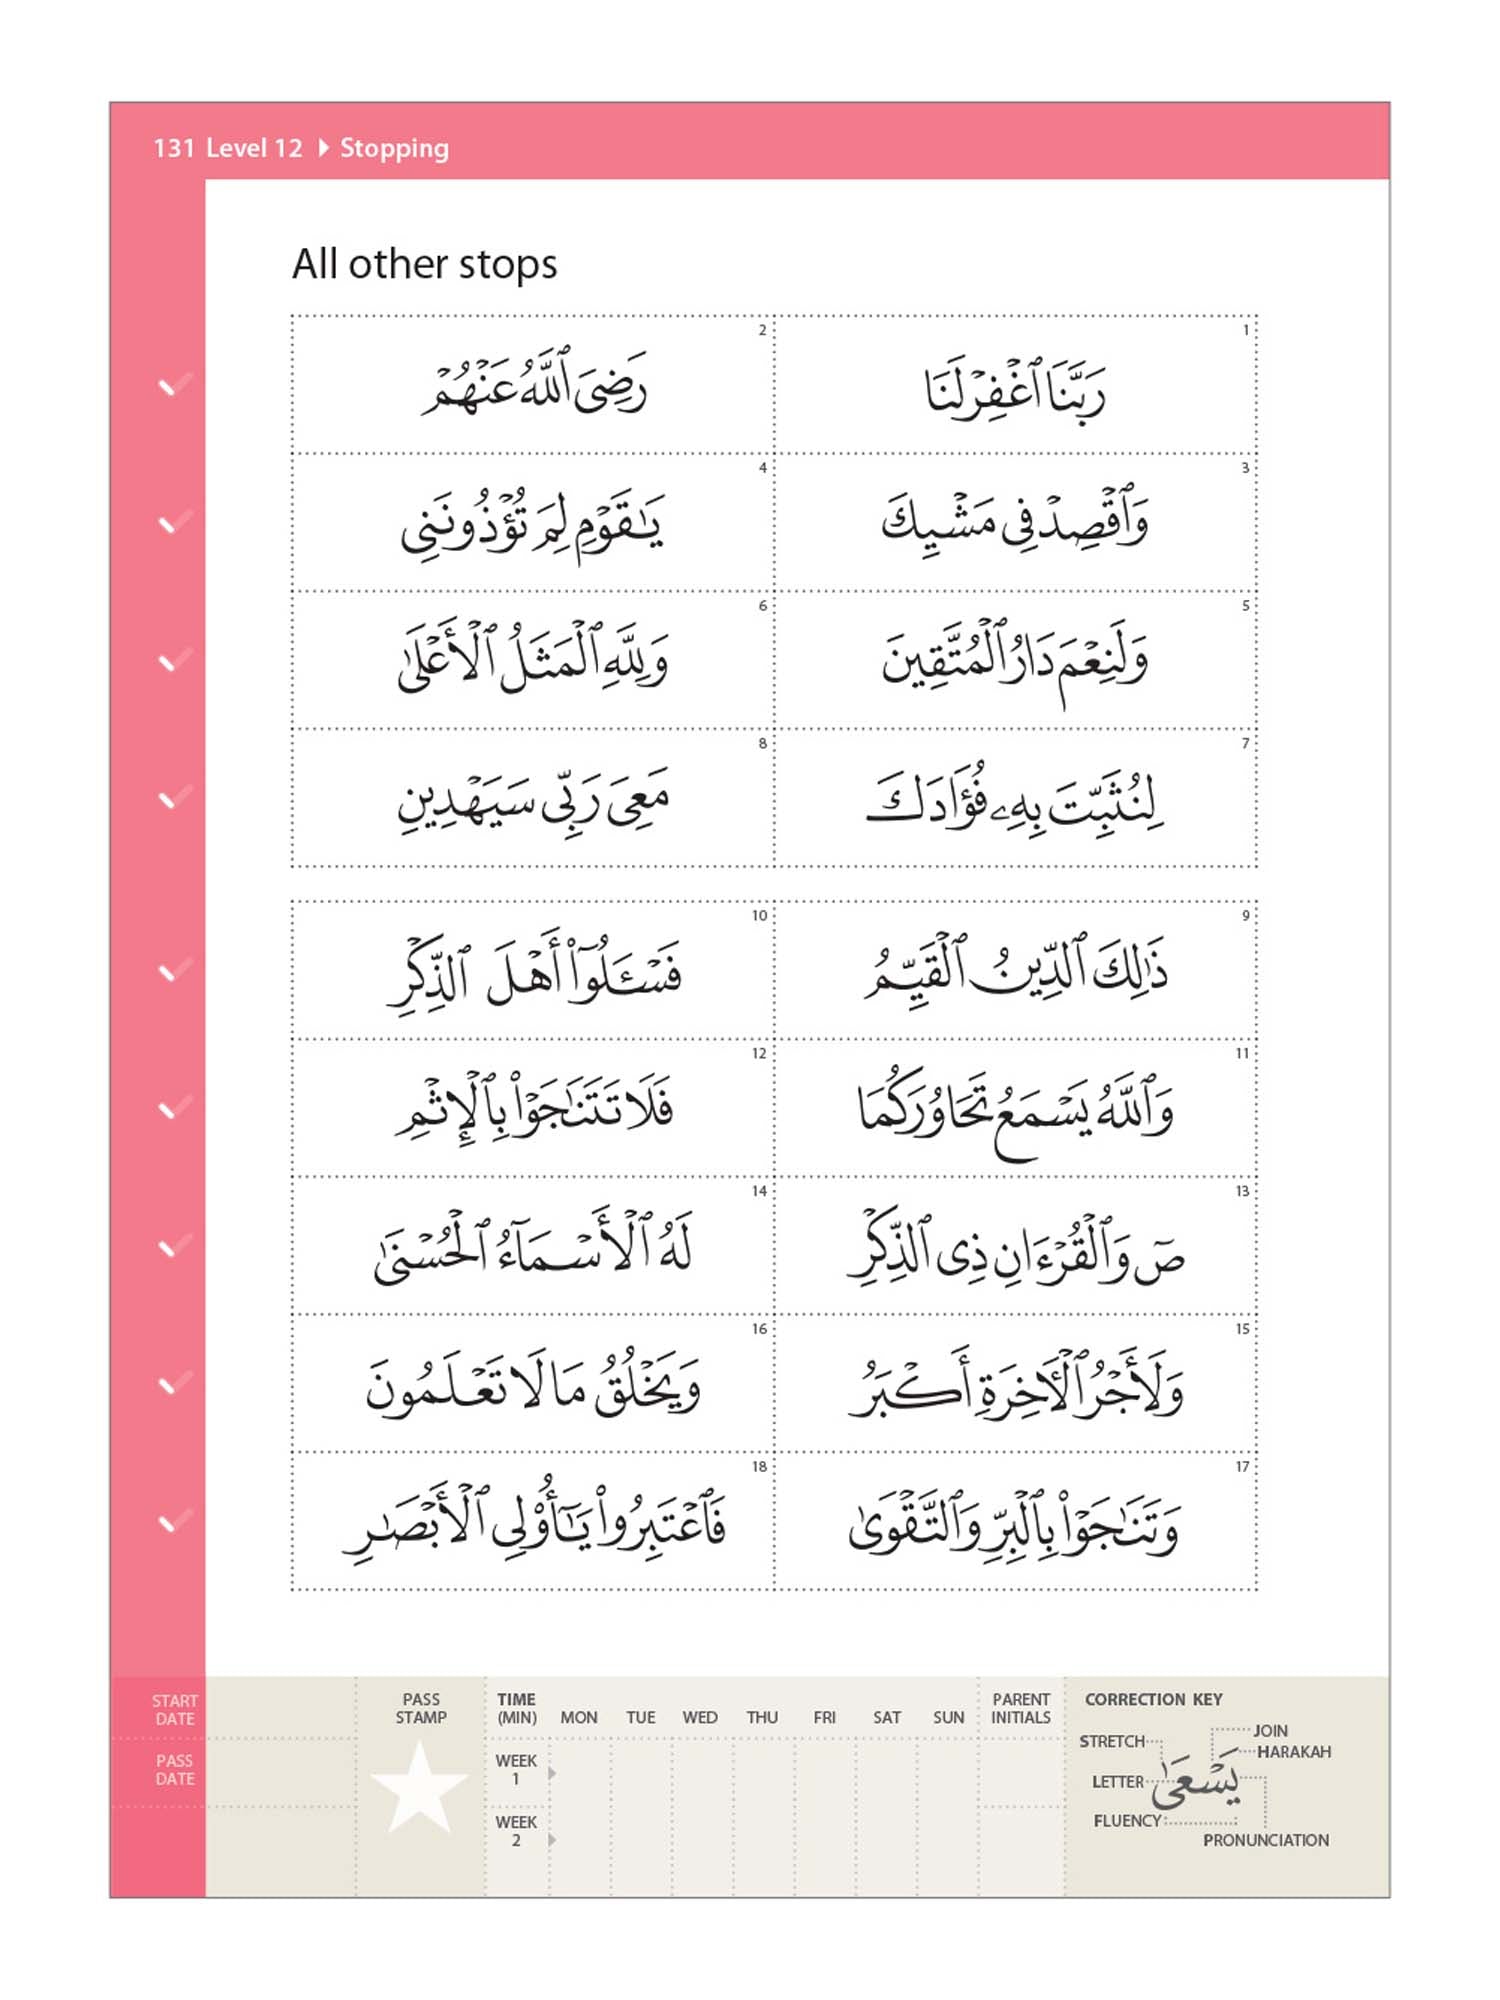 131 Level 12 ▸ Stopping
All other stops
1 رَبَّنَا ٱغْفِرْ لَنَا
2 رَضِىَ ٱللَّهُ عَنْهُمْ
3 وَٱقْصِدْ فِى مَشْيِكَ
4 يَـٰقَوْمِ لِمَ تُؤْذُونَنِى
5 وَلَنِعْمَ دَارُ ٱلْمُتَّقِينَ
6 وَلِلَّهِ ٱلْمَثَلُ ٱلْأَعْلَىٰ
7 لِنُثَبِّتَ بِهِۦ فُؤَادَكَ
8 مَعِىَ رَبِّى سَيَهْدِينِ
9 ذَٰلِكَ ٱلدِّينُ ٱلْقَيِّمُ
10 فَسْـَٔلُوٓا۟ أَهْلَ ٱلذِّكْرِ
11 وَٱللَّهُ يَسْمَعُ تَحَاوُرَكُمَا
12 فَلَا تَتَنَـٰجَوْا۟ بِٱلْإِثْمِ
13 صٓ وَٱلْقُرْءَانِ ذِى ٱلذِّكْرِ
14 لَهُ ٱلْأَسْمَآءُ ٱلْحُسْنَىٰ
15 وَلَأَجْرُ ٱلْـَٔاخِرَةِ أَكْبَرُ
16 وَيَخْلُقُ مَا لَا تَعْلَمُونَ
17 وَتَنَـٰجَوْا۟ بِٱلْبِرِّ وَٱلتَّقْوَىٰ
18 فَٱعْتَبِرُوا۟ يَـٰٓأُو۟لِى ٱلْأَبْصَـٰرِ
START DATE
PASS DATE
PASS STAMP
TIME (MIN) MON TUE WED THU FRI SAT SUN
WEEK 1
WEEK 2
PARENT INITIALS
CORRECTION KEY
STRETCH
JOIN
HARAKAH
LETTER
يَسْعَىٰ
FLUENCY
PRONUNCIATION